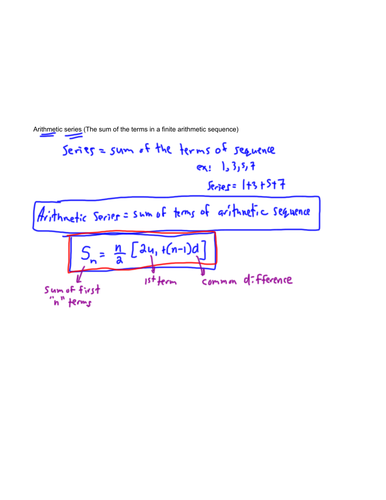 Arithmetic series (The sum of the terms in a finite arithmetic sequence)
Series = sum of the terms of sequence
ex: 1, 3, 5, 7
Series = 1+3+5+7
Arithmetic Series = sum of terms of arithmetic sequence
Sₙ = n/2 [2u₁ + (n-1)d]
sum of first "n" terms
1st term
common difference